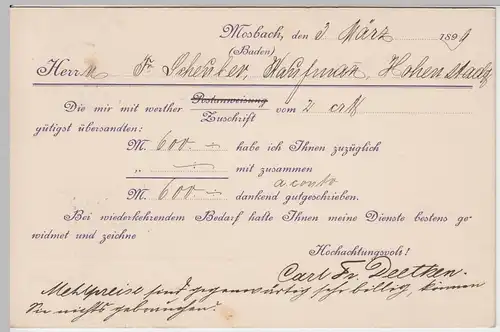 Mosbach, den 3 März 1899
(Baden)
Herrn Fr. Scheuber, Kaufman, Hohenstadt
Die mir mit werther Postanweisung vom 2 crt
Zuschrift
gütigst übersandten:
M. 600.— habe ich Ihnen zuzüglich
„ — mit zusammen
a conto
M. 600 — dankend gutgeschrieben.
Bei wiederkehrendem Bedarf halte Ihnen meine Dienste bestens ge-
widmet und zeichne
Hochachtungsvoll!
Carl Fr. Deetken.
Mehlpreise sind gegenwärtig sehr billig, können
Sie nichts gebrauchen?